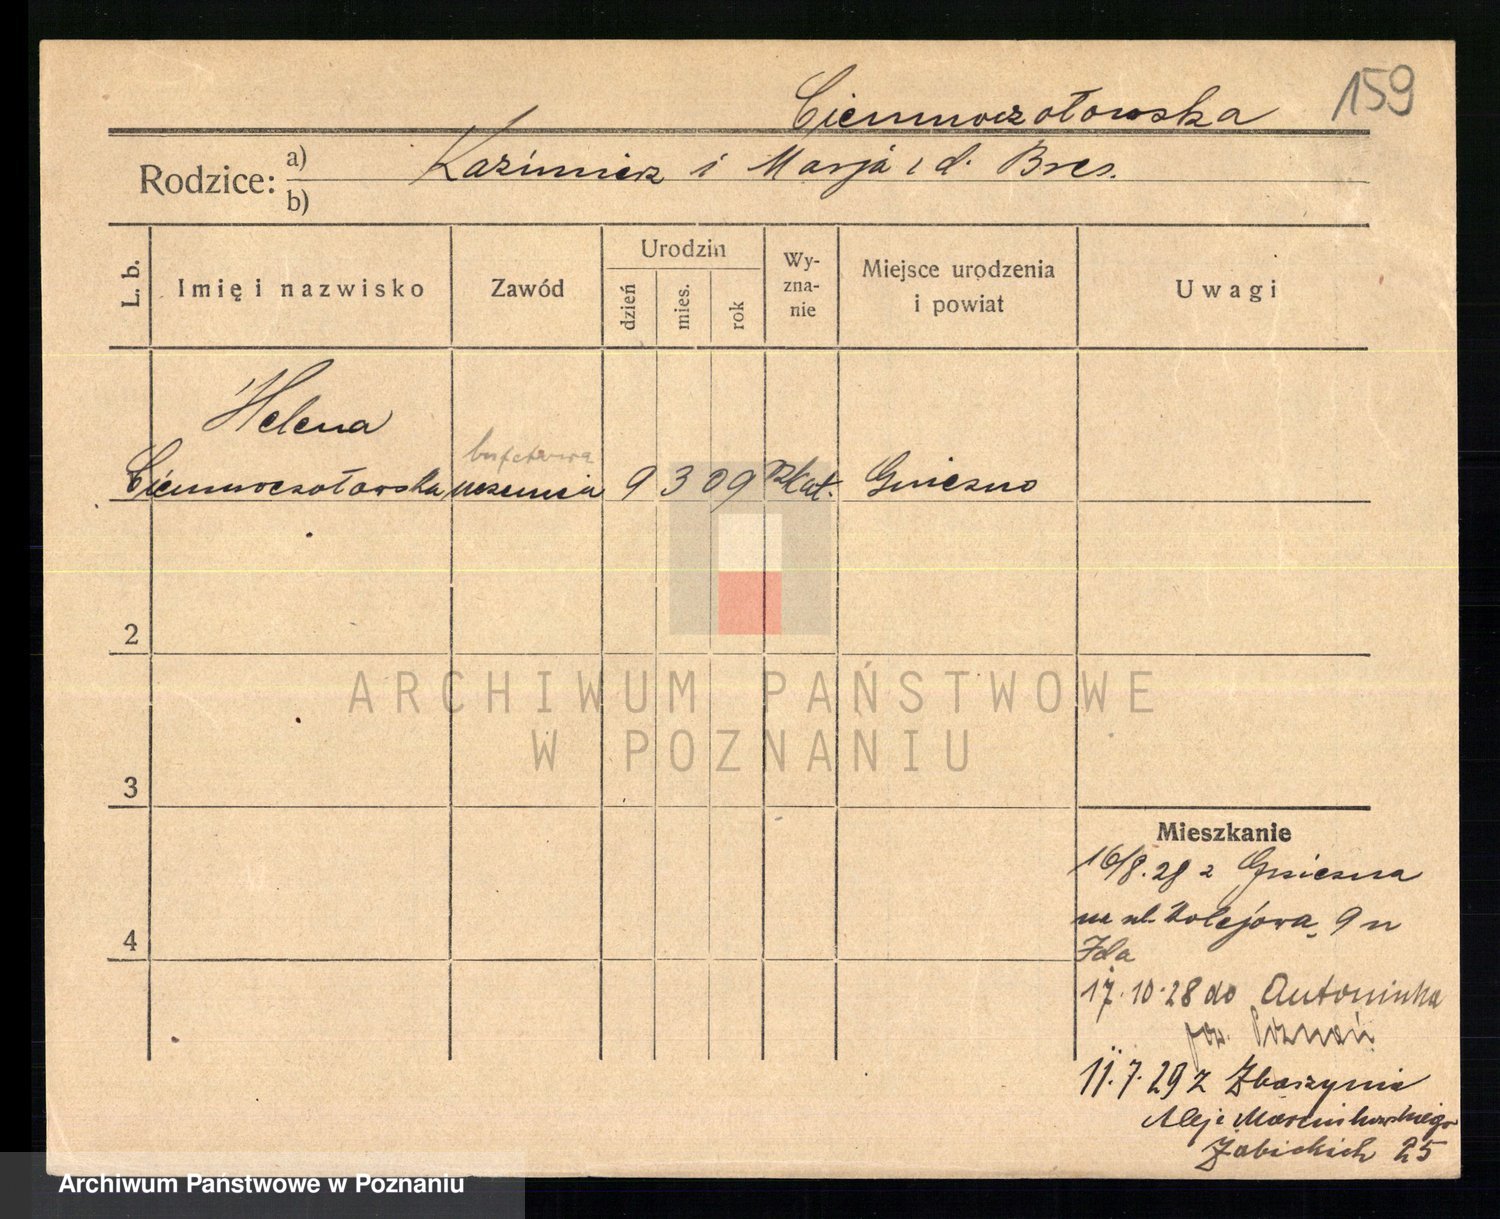 159
Ciemnoczołowska
Rodzice: a) Kazimierz i Marja z d. Bres.
b)
L. b.
Imię i nazwisko
Zawód
Urodzin
dzień
mies.
rok
Wy-
zna-
nie
Miejsce urodzenia
i powiat
Uwagi
Helena
bufetowa
Ciemnoczołowska uczenica 9 3 09 rzkat. Gniezno
2
3
4
Mieszkanie
16/8.28 z Gniezna
na ul. Kolejowa 9 u
Ida
17.10.28 do Antoninka
pow. Poznań
11.7.29 z Zbąszynia
Aleje Marcinkowskiego
Żabickich 25
ARCHIWUM PAŃSTWOWE
W POZNANIU
Archiwum Państwowe w Poznaniu